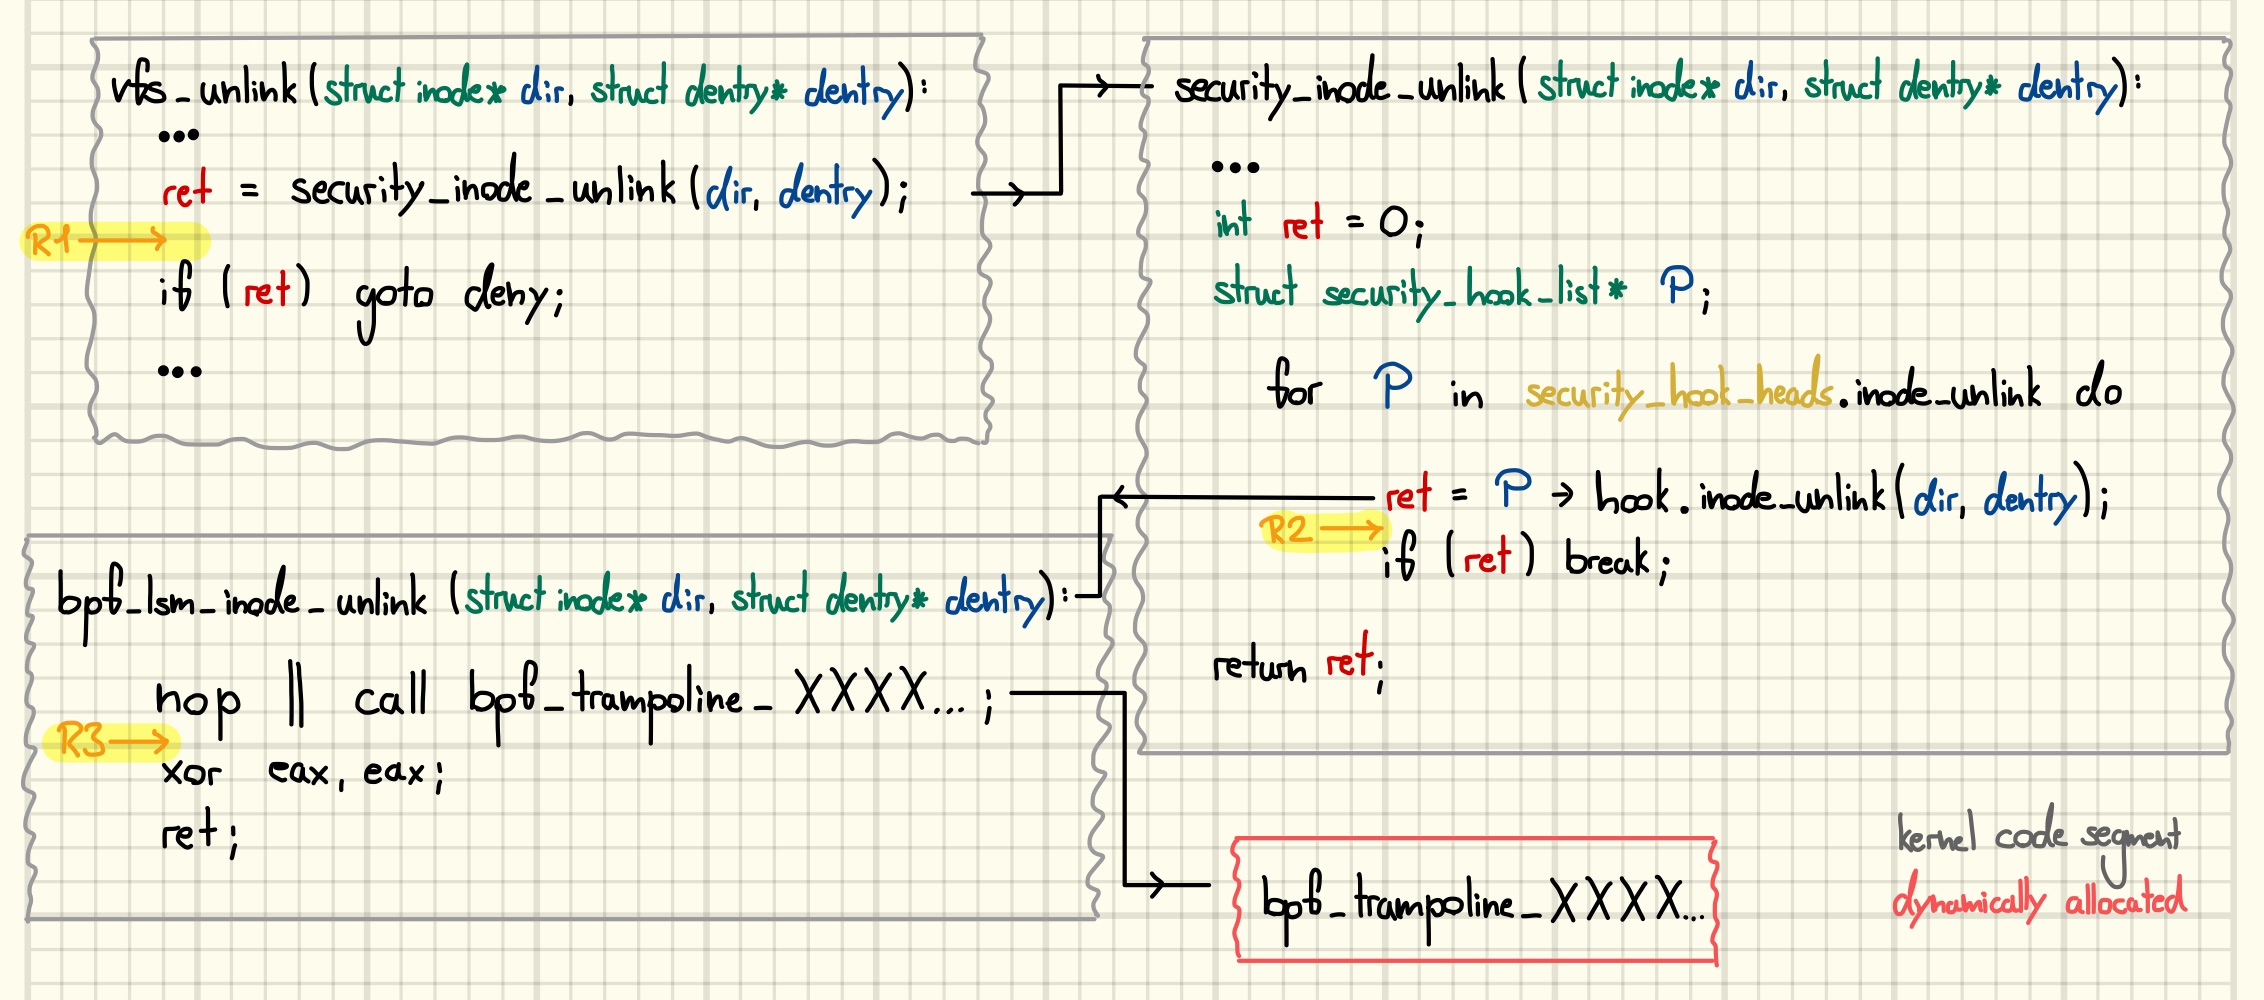 vfs_unlink(struct inode* dir, struct dentry* dentry):
...
ret = security_inode_unlink(dir, dentry);
R1 →
if (ret) goto deny;
...
security_inode_unlink(struct inode* dir, struct dentry* dentry):
...
int ret = 0;
struct security_hook_list* P;
for P in security_hook_heads.inode_unlink do
ret = P → hook.inode_unlink(dir, dentry);
R2 →
if (ret) break;
return ret;
bpf_lsm_inode_unlink (struct inode* dir, struct dentry* dentry):
nop || call bpf_trampoline_XXXX...;
R3 →
xor eax, eax;
ret;
bpf_trampoline_XXXX...
kernel code segment
dynamically allocated